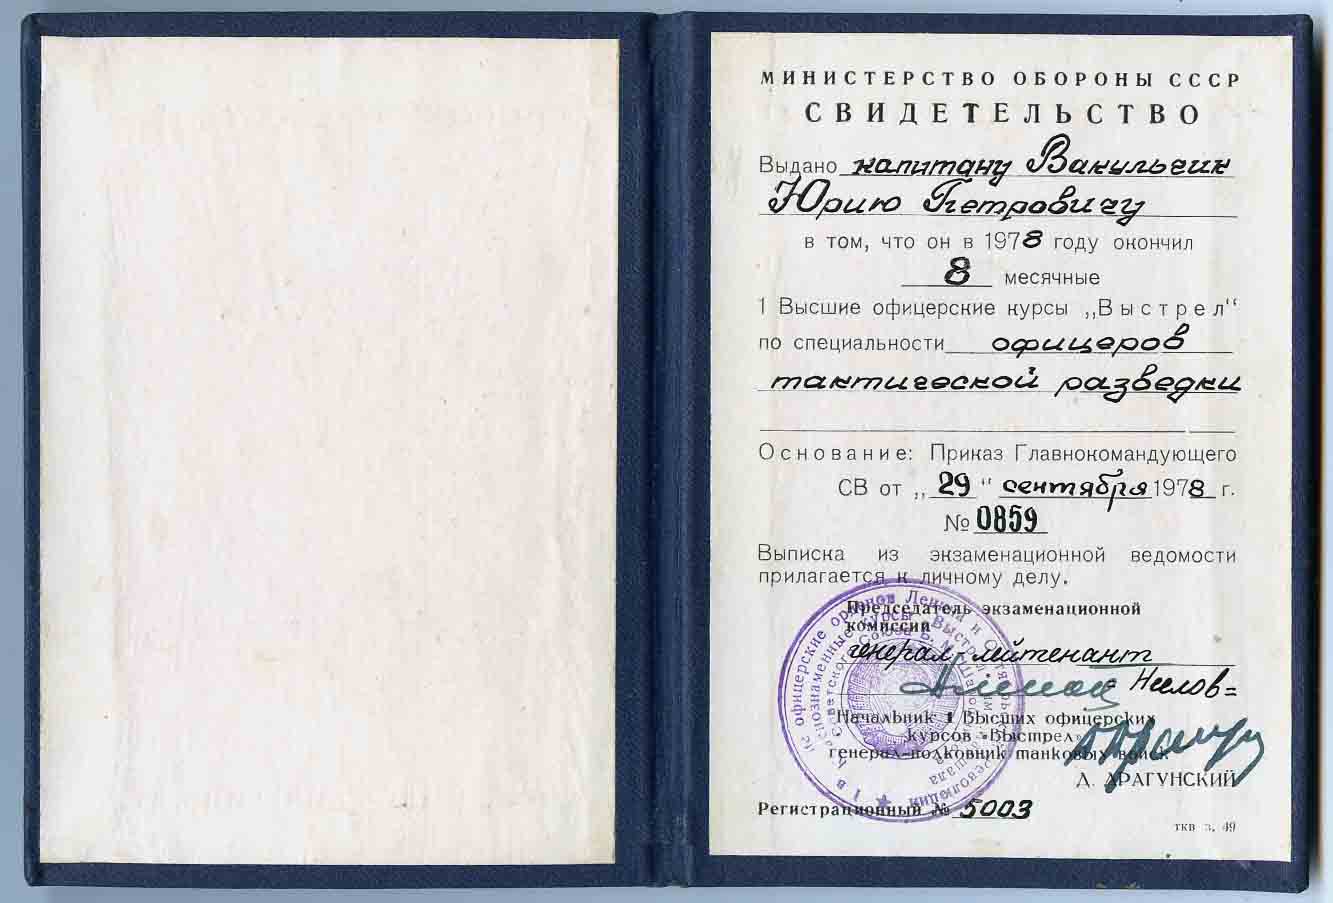 МИНИСТЕРСТВО ОБОРОНЫ СССР
СВИДЕТЕЛЬСТВО
Выдано капитану Вакульчик
Юрию Петровичу
в том, что он в 1978 году окончил
8 месячные
1 Высшие офицерские курсы „Выстрел“
по специальности офицеров
тактической разведки
Основание: Приказ Главнокомандующего
СВ от „29“ сентября 1978 г.
№ 0859
Выписка из экзаменационной ведомости
прилагается к личному делу.
Председатель экзаменационной
комиссии
генерал-лейтенант
Нилов
Начальник 1 Высших офицерских
курсов «Выстрел»
генерал-полковник танковых войск
Д. ДРАГУНСКИЙ
Регистрационный № 5003
ткв з. 49
офицерские орденов Ленина и Октябрьской Революции
Краснознаменные курсы „Выстрел“ имени Маршала
Советского Союза Б. М. Шапошникова